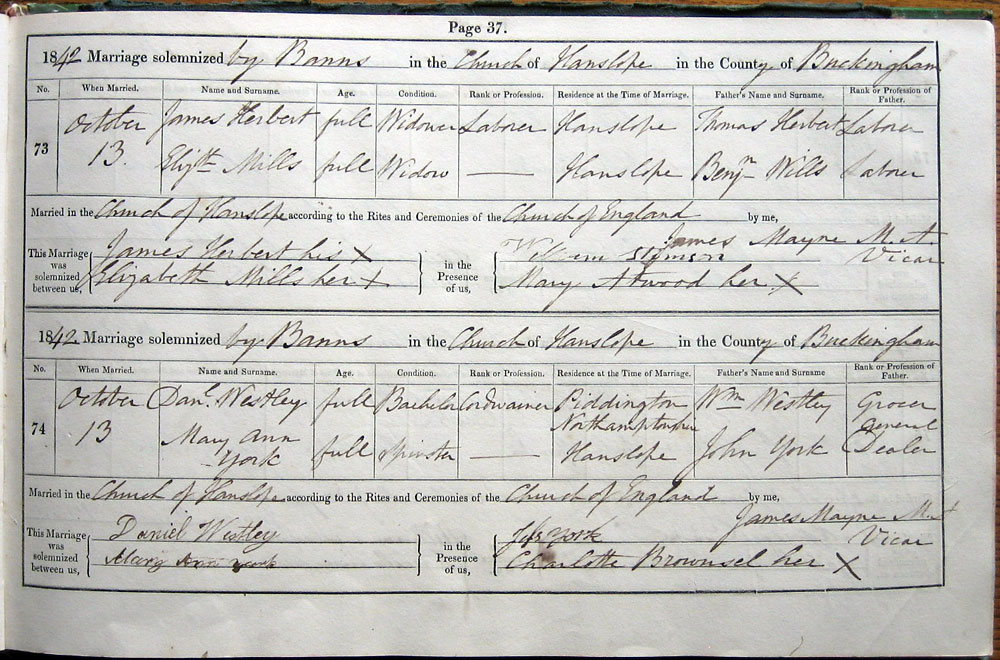 Page 37.
1842 Marriage solemnized by Banns in the Church of Hanslope in the County of Buckingham
No. When Married. Name and Surname. Age. Condition. Rank or Profession. Residence at the Time of Marriage. Father's Name and Surname. Rank or Profession of Father.
73 October 13. James Herbert full Widower Laborer Hanslope Thomas Herbert Laborer
Elizth Mills full Widow — Hanslope Benjn Wills Laborer
Married in the Church of Hanslope according to the Rites and Ceremonies of the Church of England by me,
James Mayne M.A. Vicar
This Marriage was solemnized between us, James Herbert his X
Elizabeth Mills her X
in the Presence of us, William Stimson
Mary Atwood her X
1842. Marriage solemnized by Banns in the Church of Hanslope in the County of Buckingham
No. When Married. Name and Surname. Age. Condition. Rank or Profession. Residence at the Time of Marriage. Father's Name and Surname Rank or Profession of Father.
74 October 13 Danl. Westley full Bachelor Cordwainer Piddington Northamptonshire Wm Westley Grocer
Mary Ann York full Spinster — Hanslope John York General Dealer
Married in the Church of Hanslope according to the Rites and Ceremonies of the Church of England by me,
James Mayne M.A Vicar
This Marriage was solemnized between us, Daniel Westley
Mary Ann york
in the Presence of us, York
Charlotte Brownsel her X